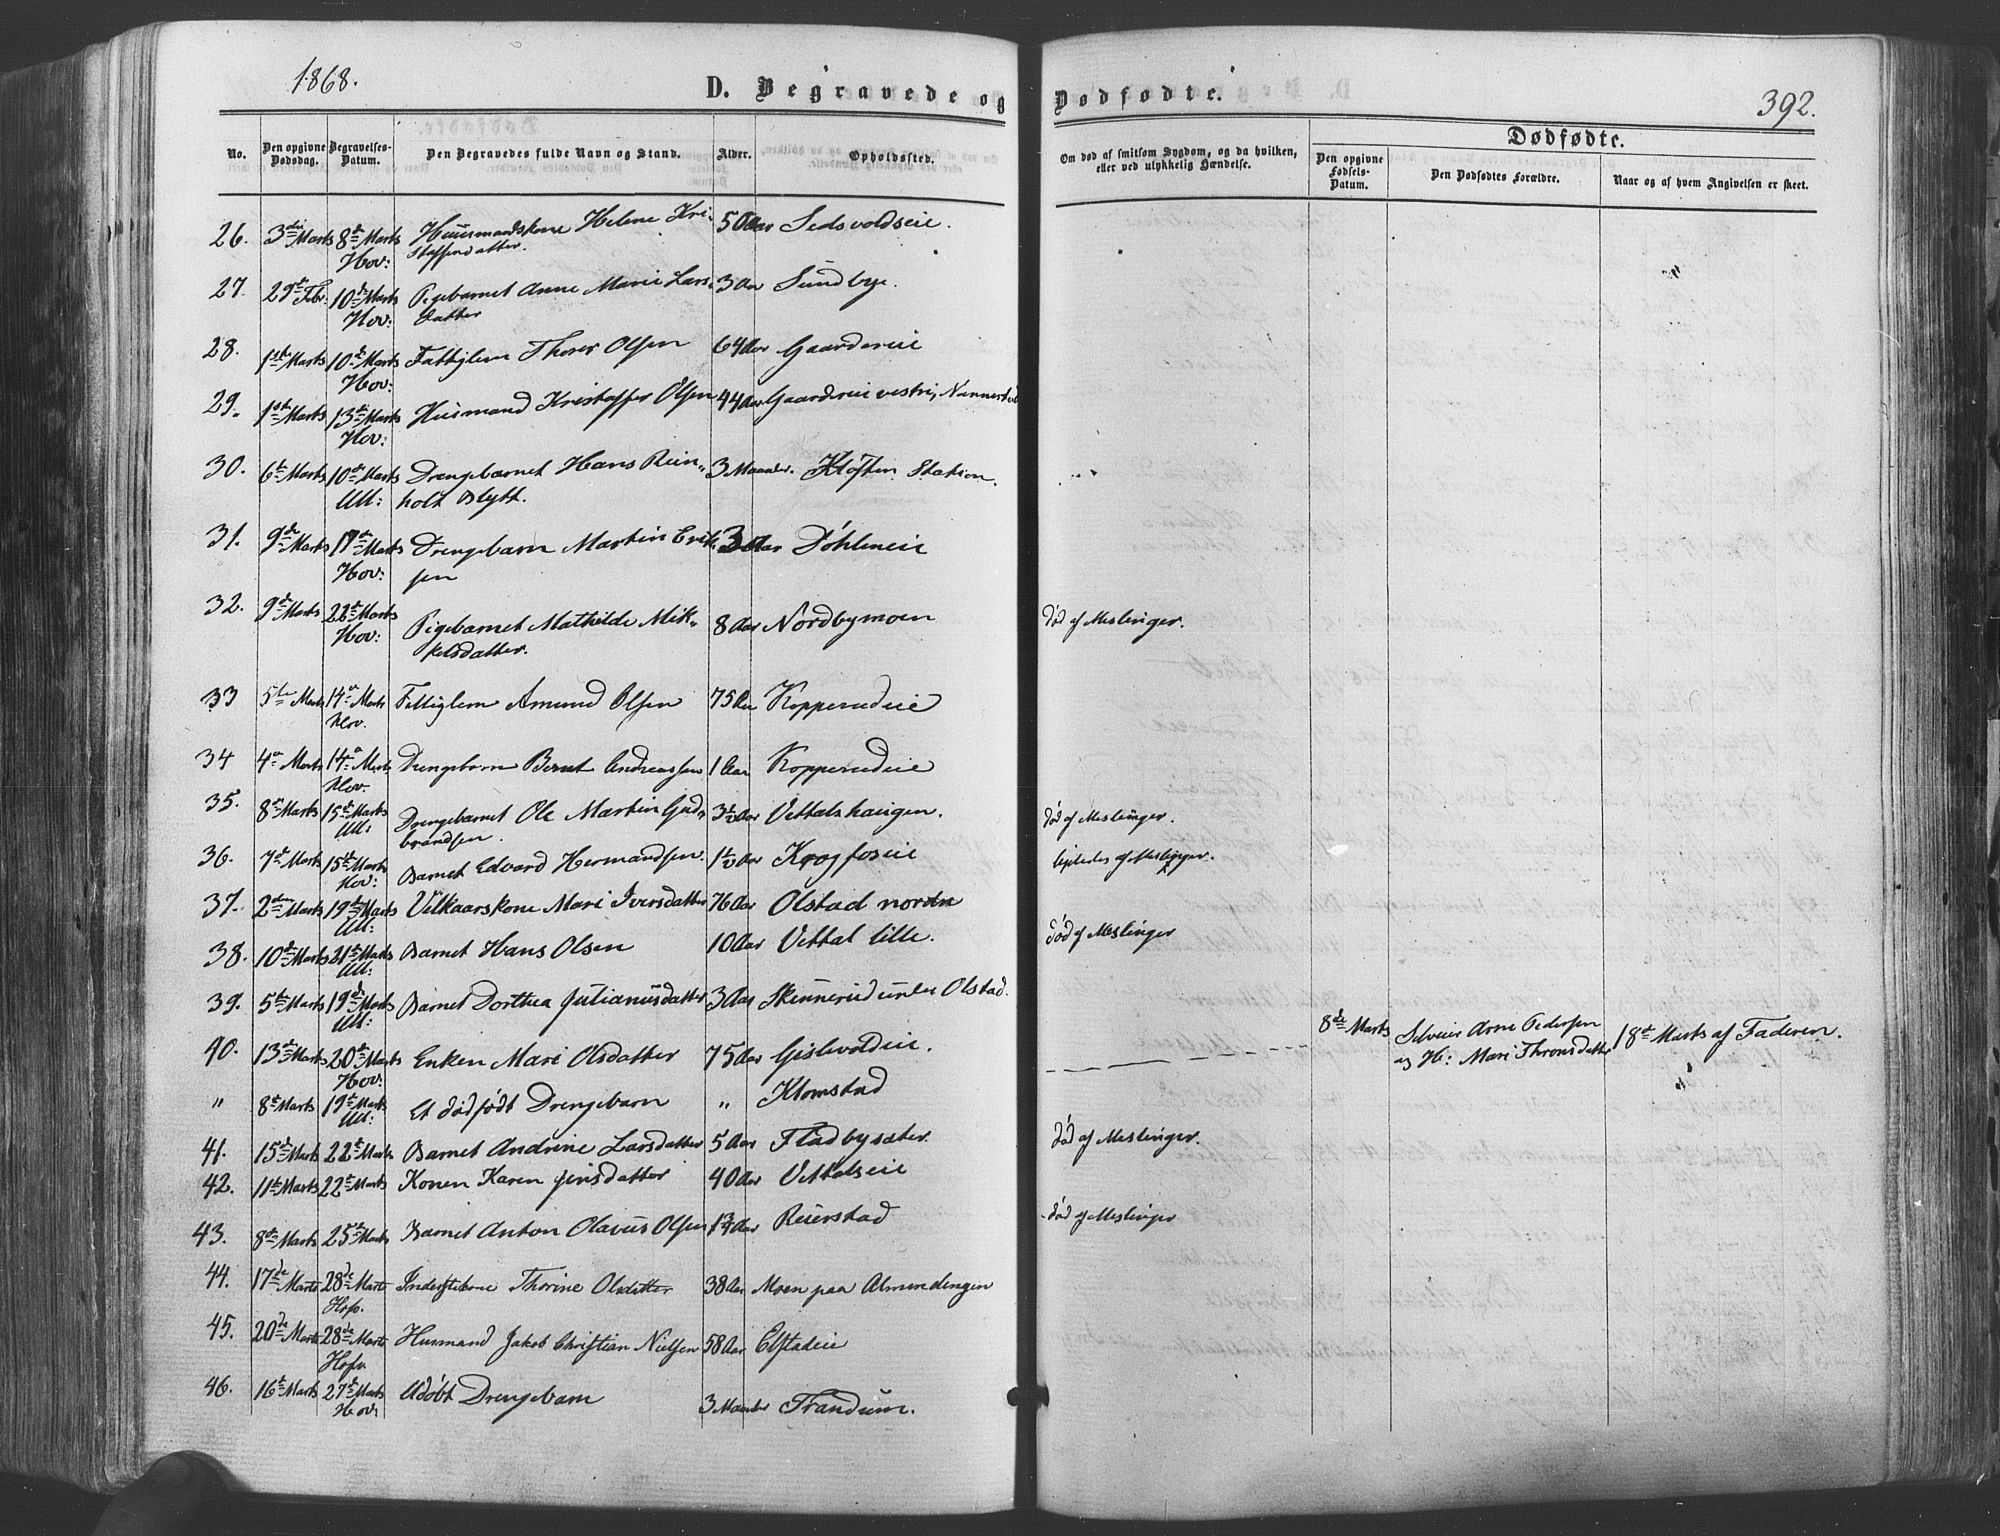 1868.
D. Begravede og Dødfødte.
392.
No.
Den opgivne Dødsdag.
Begravelses-Datum.
Den Begravedes fulde Navn og Stand.
Alder.
Opholdssted.
Om død af smitsom Sygdom, og da hvilken, eller ved ulykkelig Hændelse.
Dødfødte.
Den opgivne Fødsels-Datum.
Den Dødfødtes Forældre.
Naar og af hvem Angivelsen er skeet.
26. 3die Marts 8de Marts Huusmandskone Helene Kri- 50 Aar Sedsvoldseie.
Hov: staffersdatter.
27. 29de Febr. 10de Marts Pigebarnet Anne Marie Lars- 3 Aar Sundbye.
Hov: datter
28. 1ste Marts 10de Marts Fattiglem Thorer Olsen 64 Aar Gaardereie
Hov:
29. 1ste Marts 13de Marts Husmand Kristoffer Olsen 44 Aar Gaardereie vestre, Nannestad
Hov:
30. 6te Marts 10de Marts Drengebarnet Hans Rein„ 3 Maaneder. Kløften Station.
Ull: holt Blytt.
31. 9de Marts 17de Marts Drengebarn Martin Erik 3 Aar Døhleneie
Hov: sen
32. 9de Marts 22de Marts Pigebarnet Mathilde Mik„ 8 Aar Nordbymoen død af Meslinger.
Hov: kelsdatter.
33 5te Marts 14de Marts Fattiglem Amund Olsen 75 Aar Kopperudeie
Hov.
34 4de Marts 14de Marts Drengebarn Bernt Andreassen 1 Aar Kopperudeie
Hov.
35. 8de Marts 15de Marts Drengebarnet Ole Martin Gud„ 3½ Aar Vettalshaugen. død af Meslinger.
Ull: brandsen.
36. 7de Marts 15de Marts Barnet Edvard Hermandsen. 1½ Aar Krogfoseie ligeledes af Meslinger.
Hov:
37. 2den Marts 19de Marts Vilkaarskone Mari Iversdatter 76 Aar Olstad nordre
Ull:
38. 10de Marts 21de Marts Barnet Hans Olsen 10 Aar Vettal lille. død af Meslinger
Ull:
39. 5te Marts 19de Marts Barnet Dorthea Julianusdatter 3 Aar Skinnerud under Olstad.
Ull:
40. 13de Marts 20de Marts Enken Mari Olsdatter 75 Aar Gislevoldeie.
Hov:
8de Marts Selveier Arne Pedersen 18de Marts af Faderen.
og H: Mari Thronsdatter
„ 8de Marts 19de Marts Et dødfødt Drengebarn „ Klomstad
Ull:
41. 15de Marts 22de Marts Barnet Andrine Larsdatter 5 Aar Fladbysæter død af Meslinger.
42. 11te Marts 22de Marts Konen Karen Jensdatter 40 Aar Vettalseie
43. 8de Marts 25de Marts Barnet Anton Olavus Olsen 1¾ Aar Reierstad død af Meslinger
44. 17de Marts 28de Marts Inderstekone Thorine Olsdatter 38 Aar Moen paa Almendingen
Hofv.
45. 20de Marts 28de Marts Husmand Jakob Christian Nielsen 58 Aar Elstadeie
Hofv.
46. 16de Marts 27de Marts Udøbt Drengebarn 3 Maaneder Trandum.
Hov: